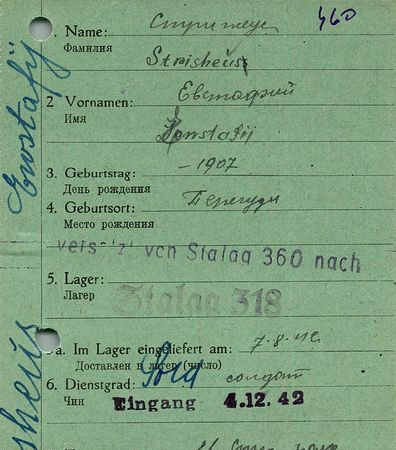 460
1. Name: Стришеус
Фамилия
Strisheus
2 Vornamen: Евстафий
Имя
Konstafij
3. Geburtstag: - 1907
День рождения
4. Geburtsort:
Место рождения
von Stalag 360 nach
5. Lager: Stalag 318
Лагер
a. Im Lager eingeliefert am: 7.8.42
Доставлен в лагер (число)
6. Dienstgrad: Sold солдат
Чин
Eingang 4.12.42
Ewstafij
sheus